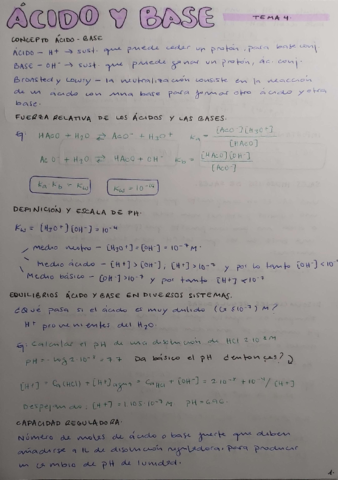 ÁCIDO Y BASE
TEMA 4
CONCEPTO ÁCIDO - BASE
ÁCIDO - H⁺ → sust. que puede ceder un protón, para base conj.
BASE - OH⁻ → sust. que puede ganar un protón, ác. conj.
Bronsted y Lowry - la neutralización consiste en la reacción
de un ácido con una base para formar otro ácido y otra
base.
FUERZA RELATIVA DE LOS ÁCIDOS Y LAS BASES.
HAcO + H₂O ⇄ AcO⁻ + H₃O⁺ KA = [AcO⁻][H₃O⁺] / [HAcO]
AcO⁻ + H₂O ⇄ HAcO + OH⁻ = [HAcO][OH⁻] / [AcO⁻]
= Kw Kw = 10⁻¹⁴
DEFINICIÓN Y ESCALA DE PH.
Kw = [H₃O⁺][OH⁻] = 10⁻¹⁴
Medio neutro - [H₃O⁺] = [OH⁻] = 10⁻⁷ M
Medio ácido - [H⁺] > [OH⁻], [H⁺] > 10⁻⁷ y por lo tanto [OH⁻] < 10⁻⁷
Medio básico - [OH⁻] > 10⁻⁷ y por tanto [H⁺] < 10⁻⁷
EQUILIBRIOS ÁCIDO Y BASE EN DIVERSOS SISTEMAS.
¿Qué pasa si el ácido es muy diluido
H⁺ provenientes del H₂O.
Calcular el pH de una disolución de HCl 2·10⁻⁸ M
pH = -log 2·10⁻⁸ = 7.7 Da básico el pH
[H⁺] = + [OH⁻] = 2·10⁻⁸ + 10⁻¹⁴/[H⁺]
Despejando, [H⁺] = M pH =
CAPACIDAD REGULADORA.
Número de moles de ácido o base fuerte que deben
añadirse a 1L de disolución reguladora para producir
un cambio de pH de 1 unidad.
1.